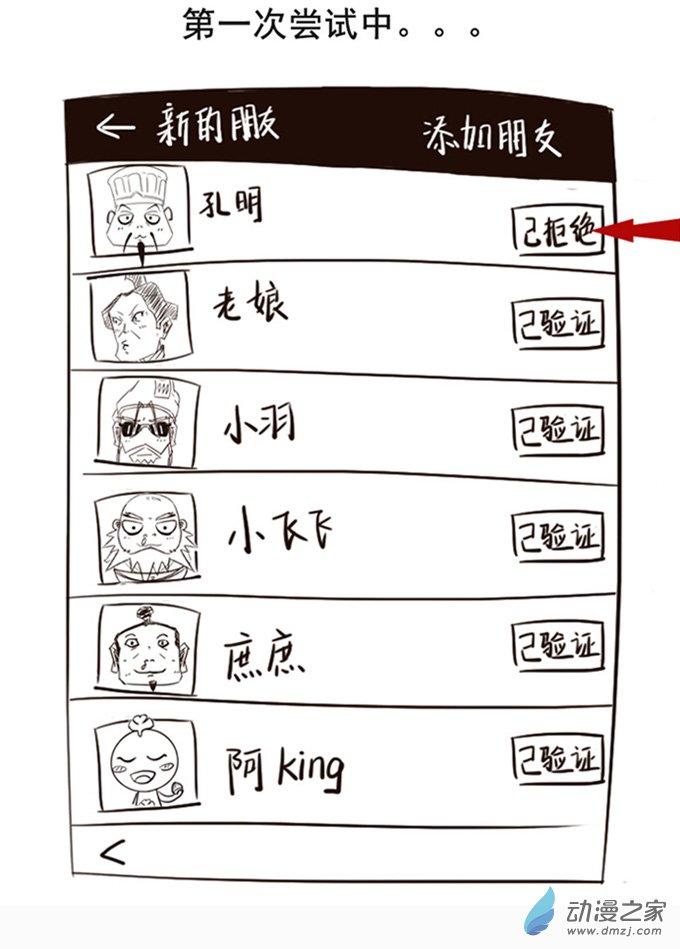 第一次尝试中。。。
← 新的朋友 添加朋友
孔明 已拒绝
老娘 已验证
小羽 已验证
小飞飞 已验证
庶庶 已验证
阿king 已验证
<
动漫之家
www.dmzj.com